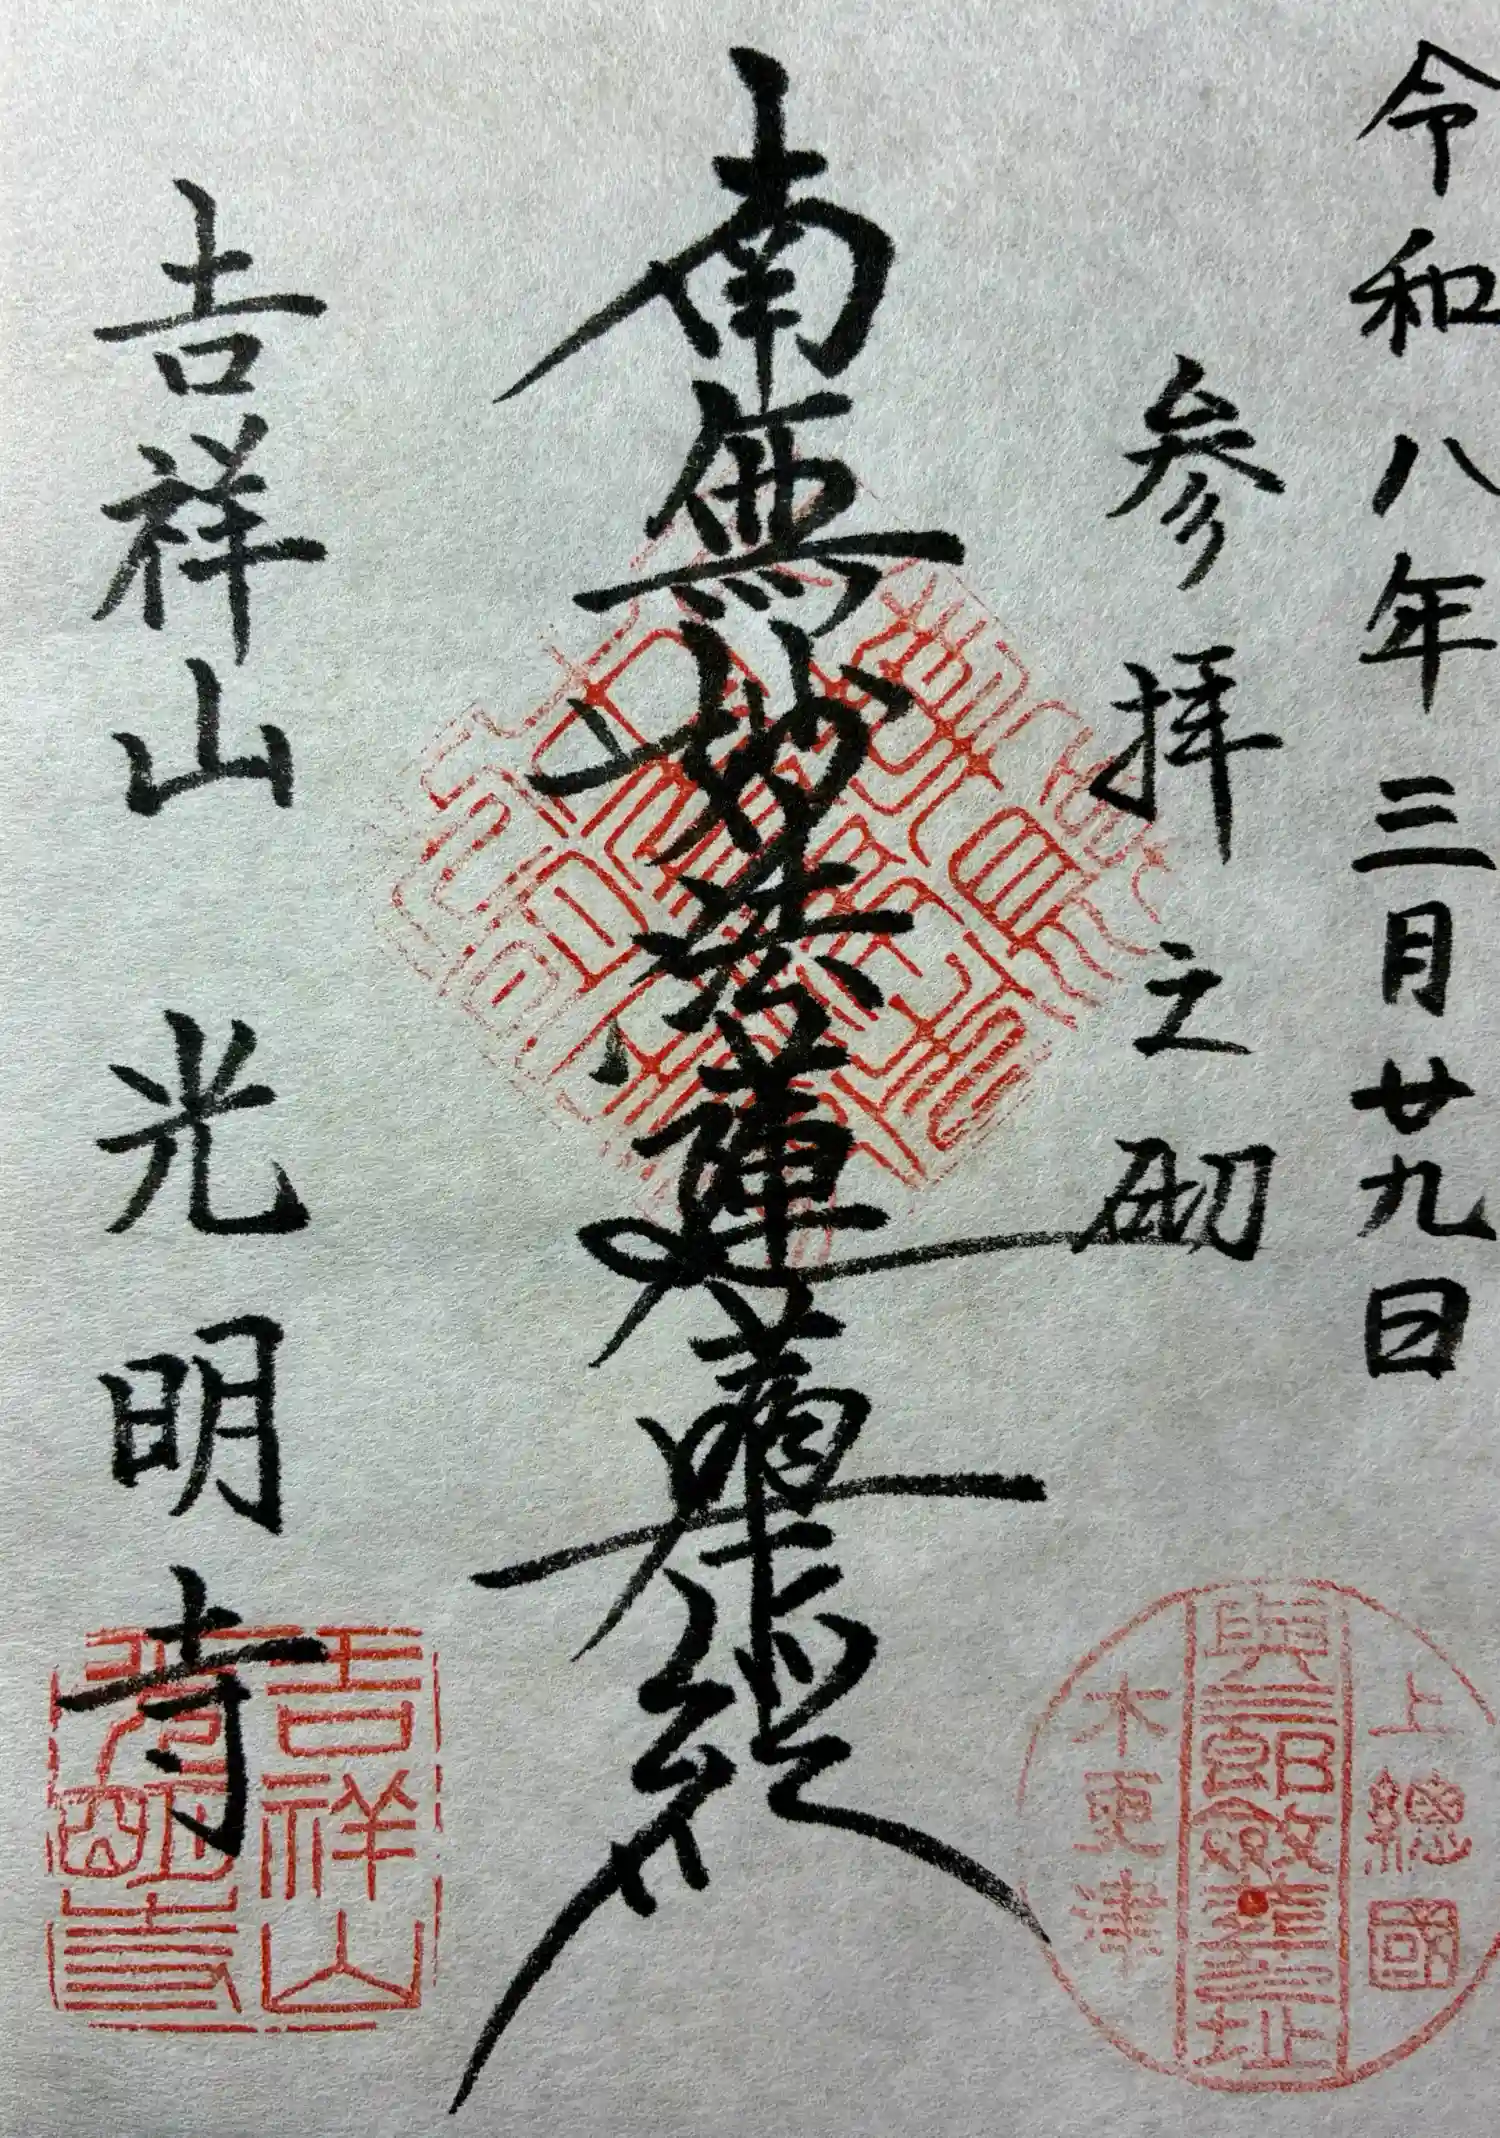 令和八年三月廿九日
参拝之砌
南無妙法蓮華経
吉祥山 光明寺
上總國
木更津
吉祥山
光明寺